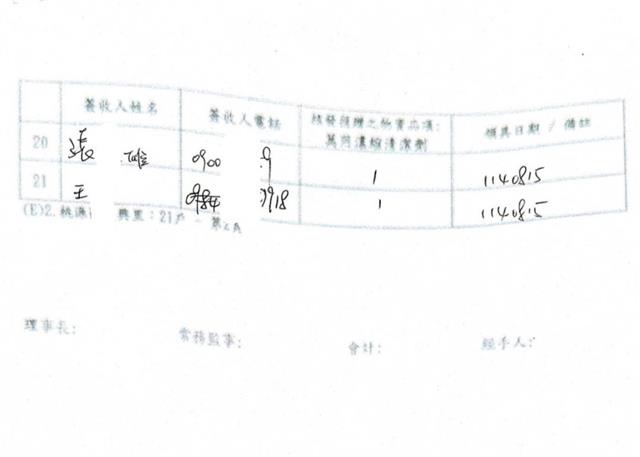 簽收人姓名 簽收人電話 核發獲贈之物資品項: 領具日期 / 備註
萬用濃縮清潔劑
20 張 雄 0900 9 1 1140815
21 王 0984 918 1 1140815
(E)2.桃源 興里:21戶
理事長: 常務監事: 會計: 經手人: